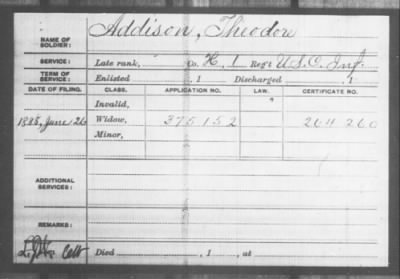 NAME OF SOLDIER: Addison, Theodore
SERVICE: Late rank, Co. H, 1 Reg't U.S.C. Inf.
TERM OF SERVICE: Enlisted , 1 Discharged , 1
DATE OF FILING. CLASS. APPLICATION NO. LAW. CERTIFICATE NO.
Invalid,
1888, June 26 Widow, 375152 264 260
Minor,
ADDITIONAL SERVICES:
REMARKS:
Died , 1 , at